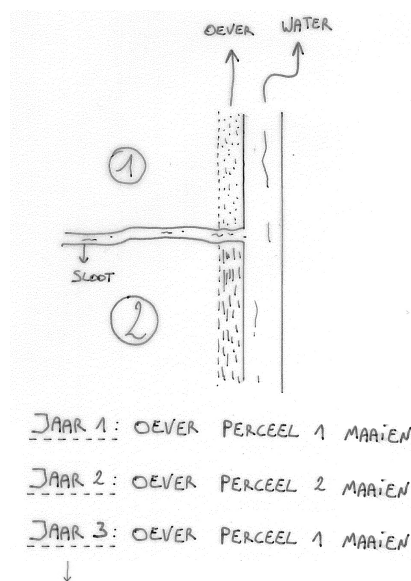 OEVER WATER
1
SLOOT
2
JAAR 1: OEVER PERCEEL 1 MAAIEN
JAAR 2: OEVER PERCEEL 2 MAAIEN
JAAR 3: OEVER PERCEEL 1 MAAIEN